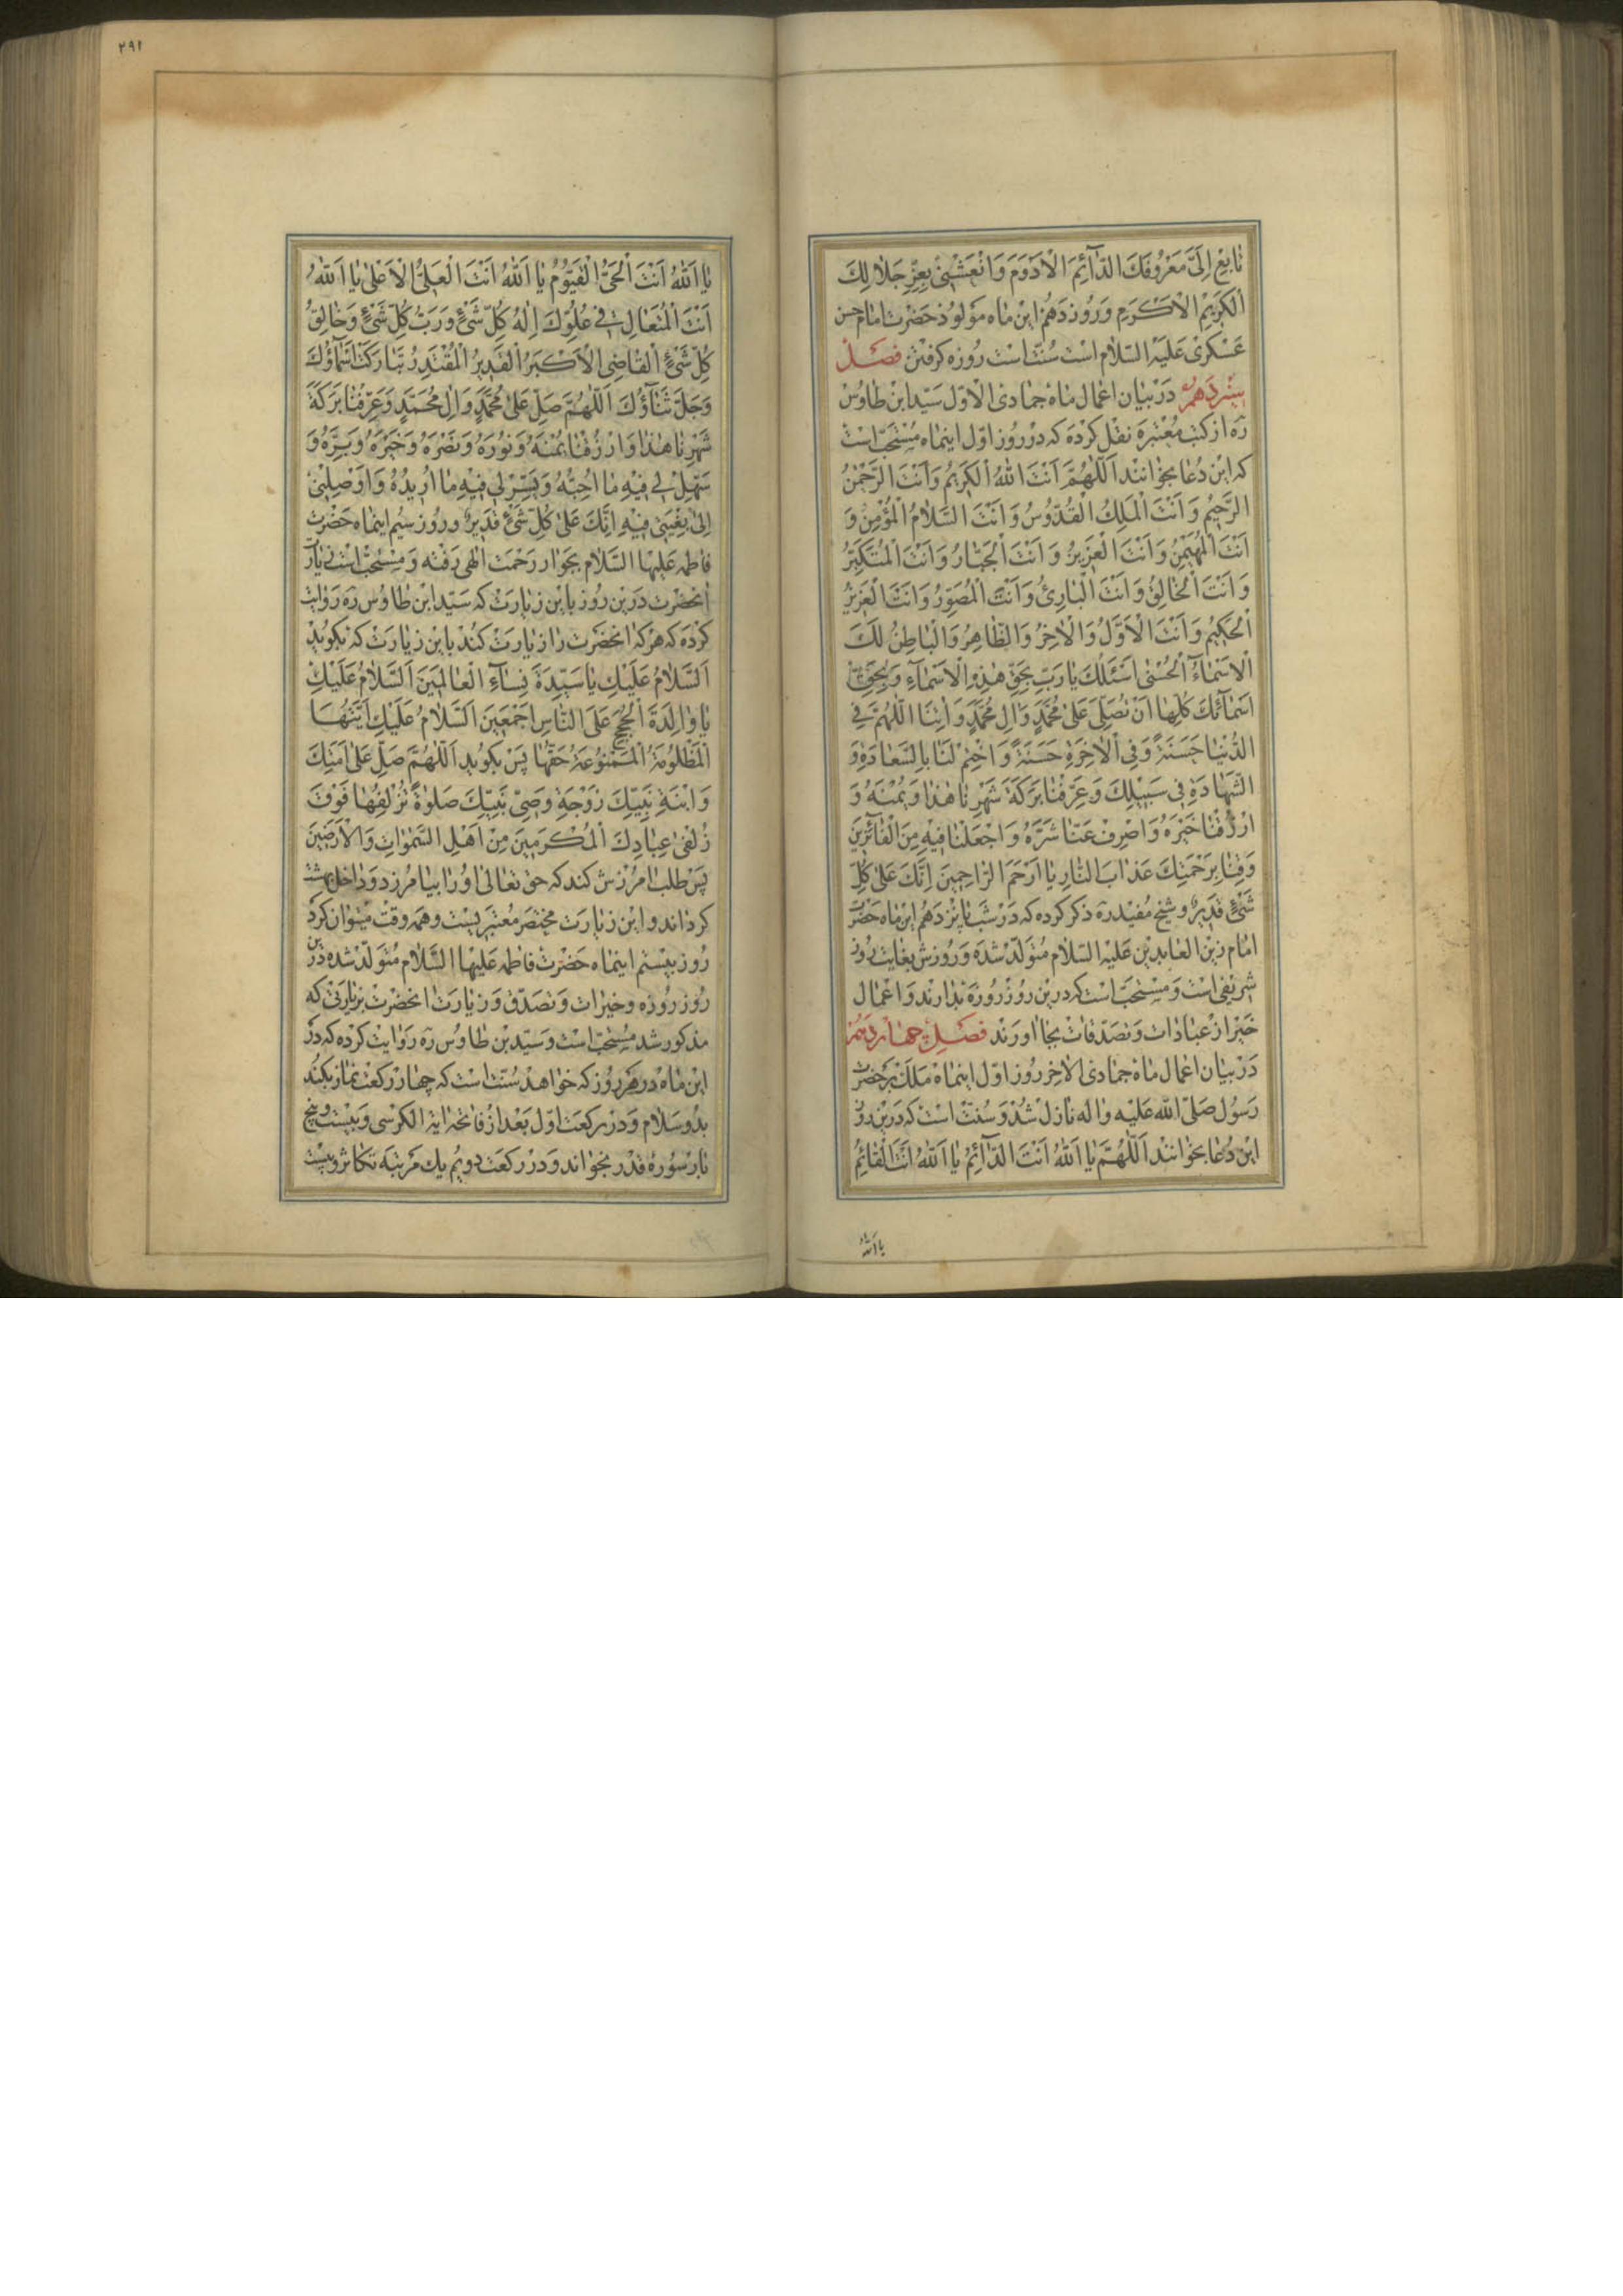 تابِعْ اِلَيَّ مَعْرُوفَكَ الدّآئِمَ الْاَدْوَمَ وَانْعَشْنِي بِعِزِّ جَلالِكَ
الْكَرِيْمِ الْاَكْرَمِ وَرُوز دَهُم اين ماه مَولُود حَضْرت امام حسن
عَسْكَرى عَلَيْهِ السَّلام است سُنّت است رُوزه كرفتن فَصْل
سِيْزدَهُم دَر بَيان اعمال ماه جمادى الاوّل سَيّد ابن طاوُس
ره از كتب مُعْتبره نقل كرده كه در رُوز اوّل اينماه مُسْتحبّ است
كه اين دُعا بخوانند اَللّهُمَّ اَنْتَ اللّهُ الْكَرِيمُ وَاَنْتَ الرَّحْمٰنُ
الرَّحِيْمُ وَ اَنْتَ الْمَلِكُ الْقُدُّوسُ وَ اَنْتَ السَّلامُ الْمُؤْمِنُ وَ
اَنْتَ الْمُهَيْمِنُ وَ اَنْتَ الْعَزِيزُ وَ اَنْتَ الْجَبّارُ وَ اَنْتَ الْمُتَكَبِّرُ
وَ اَنْتَ الْخالِقُ وَ اَنْتَ الْبارِئُ وَ اَنْتَ الْمُصَوِّرُ وَ اَنْتَ الْعَزِيزُ
الْحَكِيْمُ وَ اَنْتَ الْاَوَّلُ وَالْاخِرُ وَالظّاهِرُ وَالْباطِنُ لَكَ
الْاَسْمآءُ الْحُسْنى اَسْئَلُكَ يا رَبِّ بِحَقِّ هٰذِهِ الْاَسْمآءِ وَ بِحَقِّ
اَسْمآئِكَ كُلِّها اَنْ تُصَلِّيَ عَلى مُحَمَّدٍ وَ الِ مُحَمَّدٍ وَ اتِنَا اللّهُمَّ فِي
الدُّنْيا حَسَنَةً وَ فِي الْاخِرَةِ حَسَنَةً وَ اخْتِمْ لَنا بِالسَّعادَةِ وَ
الشَّهادَةِ فِي سَبِيْلِكَ وَ عَرِّفْنا بَرَكَةَ شَهْرِنا هٰذا وَ يُمْنَهُ وَ
ارْزُقْنا خَيْرَهُ وَ اصْرِفْ عَنّا شَرَّهُ وَ اجْعَلْنا فِيْهِ مِنَ الْفآئِزِيْنَ
وَقِنا بِرَحْمَتِكَ عَذابَ النّارِ يا اَرْحَمَ الرّاحِمِيْنَ اِنَّكَ عَلى كُلِّ
شَيْءٍ قَدِيْرٌ و شيخ مُفيد ره ذكر كرده كه دَر شب پانزدهم اين ماه حَضْرت
امام زين العابدين عَليه السّلام متولّد شده وَ رُوزش بغايت روز
شريفى است وَ مُسْتحبّ است كه در ين روز رُوزه بدارند و اعمال
خَير از عبادات وَ تصَدّقات بجا اورند فَصْلِ چهاردهم
دَر بيان اعمال ماه جمادى الاخر رُوز اوّل اينماه مَلَك بر حضرت
رَسُول صَلّى اللّه عَليه وَاله نازل شُد وَ سُنّت است كه در ين روز
اين دُعا بخوانند اَللّهُمَّ يا اَللّهُ اَنْتَ الدّآئِمُ يا اَللّهُ اَنْتَ الْقآئِمُ
يا اَللّهُ
٢٩١
يا اَللّهُ اَنْتَ الْحَيُّ الْقَيُّوْمُ يا اَللّهُ اَنْتَ الْعَلِيُّ الْاَعْلى يا اَللّهُ
اَنْتَ الْمُتَعالِ فِي عُلُوِّكَ اِلٰهُ كُلِّ شَيْءٍ وَ رَبُّ كُلِّ شَيْءٍ وَ خالِقُ
كُلِّ شَيْءٍ الْقاضِي الْاَكْبَرُ الْقَدِيرُ الْمُقْتَدِرُ تَبارَكَتْ اَسْمآؤُكَ
وَجَلَّ ثَنآؤُكَ اَللّهُمَّ صَلِّ عَلى مُحَمَّدٍ وَ الِ مُحَمَّدٍ وَ عَرِّفْنا بَرَكَةَ
شَهْرِنا هٰذا وَ ارْزُقْنا يُمْنَهُ وَ نُوْرَهُ وَ نَصْرَهُ وَ خَيْرَهُ وَ بِرَّهُ وَ
سَهِّلْ لِي فِيْهِ ما اُحِبُّهُ وَ يَسِّرْ لِي فِيْهِ ما اُرِيدُهُ وَ اَوْصِلْنِي
اِلى بُغْيَتِي فِيْهِ اِنَّكَ عَلى كُلِّ شَيْءٍ قَدِيرٌ و روز سيُم اينماه حَضْرت
فاطمه عَلَيْها السَّلام بجوار رَحْمت الهى رَفته وَ مُسْتحبّ است زيارت
انحضْرت در ين رُوز باين زيارت كه سَيّد ابن طاوُس ره روايت
كرده كه هركه انحضرت را زيارت كند باين زيارت كه بكويد
اَلسَّلامُ عَلَيْكِ يا سَيِّدَةَ نِسآءِ الْعالَمِيْنَ اَلسَّلامُ عَلَيْكِ
يا والِدَةَ الْحُجَجِ عَلَى النّاسِ اَجْمَعِيْنَ اَلسَّلامُ عَلَيْكِ اَيَّتُهَا
الْمَظْلُومَةُ الْمَمْنُوعَةُ حَقُّها پس بكويد اَللّهُمَّ صَلِّ عَلى اَمَتِكَ
وَ ابْنَةِ نَبِيِّكَ زَوْجَةِ وَصِيِّ نَبِيِّكَ صَلوةً تُزْلِفُها فَوْقَ
زُلْفى عِبادِكَ الْمُكْرَمِيْنَ مِنْ اَهْلِ السَّمٰواتِ وَ الْاَرَضِيْنَ
پس طلب امُرزش كند كه حق تعالى اورا بيامرزد وَ داخل بهشت
كرداند و اين زيارت مختصَر مُعتبَريست و همه وقت ميتوان كرد
رُوز بيستم اينماه حَضْرت فاطمه عَليها السَّلام مُتولّد شده در ين
رُوز رُوزه و خيرات وَ تصَدّق وَ زيارت انحضْرت بزيارتى كه
مذكور شد مُسْتحبّ است و سَيّد بن طاوُس ره رَوايت كرده كه در
اين ماه در هَر رُوز كه خواهد سُنّت است كه چهار ركعت نماز بكند
بدُو سَلام وَ در ركعت اوّل بَعْد از فاتحه اية الكرسى وَ بيست و پنج
بار سُورۀ قدر بخواند و در ركعت دويُم يك مَرتبه تكاثر و بيست